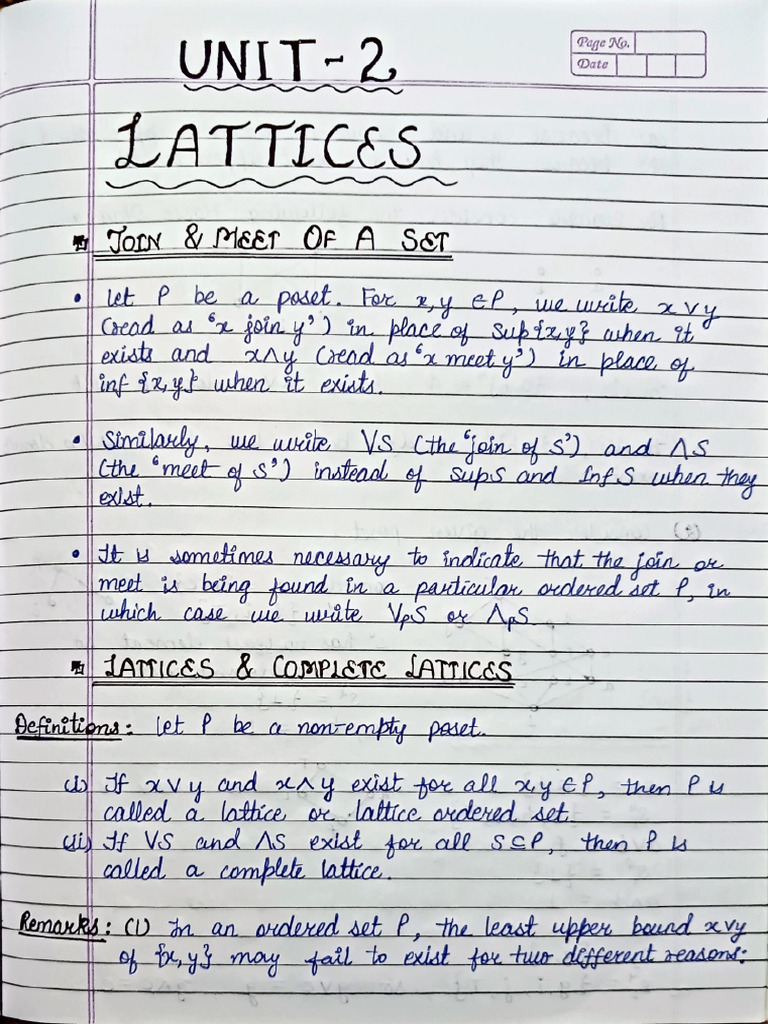 UNIT-2
Page No.
Date
LATTICES
JOIN & MEET OF A SET
• Let P be a poset. For x,y ∈P, we write x∨y
(read as 'x join y') in place of Sup{x,y} when it
exists and x∧y (read as 'x meet y') in place of
inf {x,y} when it exists.
• Similarly, we write VS (the 'join of S') and ΛS
(the 'meet of S') instead of SupS and Inf S when they
exist.
• It is sometimes necessary to indicate that the join or
meet is being found in a particular ordered set P, in
which case we write VₚS or ΛₚS.
LATTICES & COMPLETE LATTICES
Definitions: Let P be a non-empty poset.
(i) If x∨y and x∧y exist for all x,y ∈P, then P is
called a lattice or lattice ordered set.
(ii) If VS and ΛS exist for all S⊆P, then P is
called a complete lattice.
Remarks: (1) In an ordered set P, the least upper bound x∨y
of {x,y} may fail to exist for two different reasons: